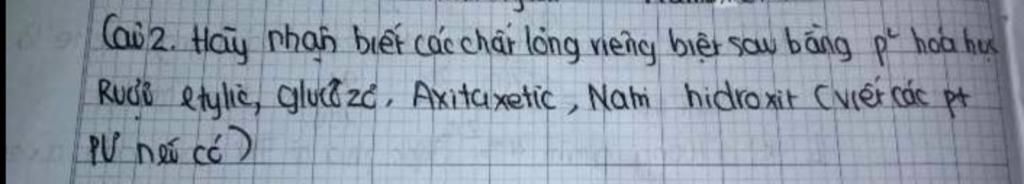 Câu 2. Hãy nhận biết các chất lỏng riêng biệt sau bằng p² hoá học
Rượu etylic, glucôzơ, Axitaxetic, Natri hidroxit (viết các pt
PƯ nếu có)